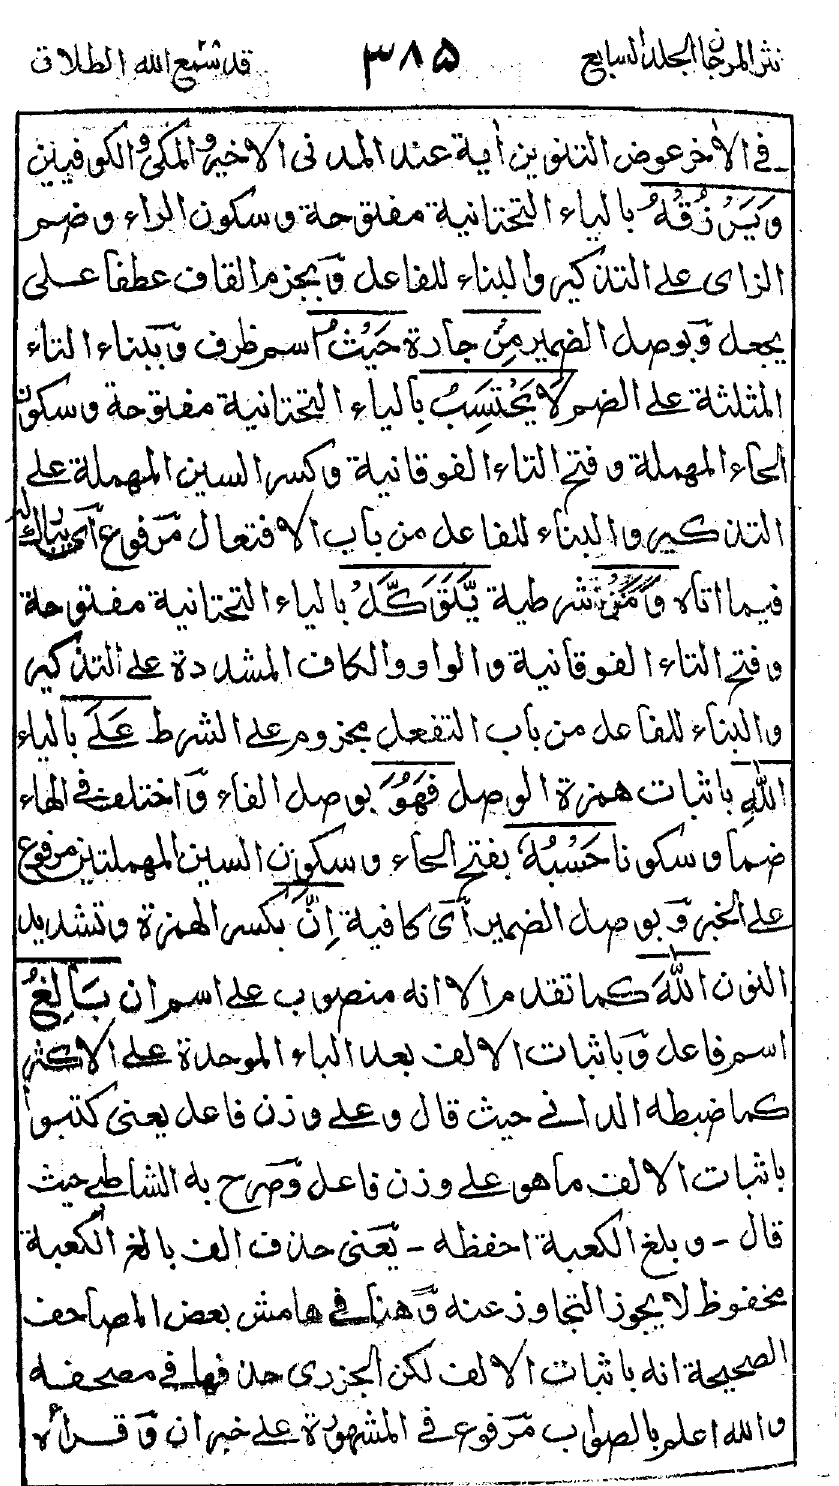 نثر المرجان الجلد السابع ٣٨٥ قد سمع الله ٢٨ الطلاق
في الاخر عوض التنوين أية عند المدنى الاخير والمكى والكوفيين
وَيَرْزُقْهُ بالياء التحتانية مفتوحة وسكون الراء وضم
الزاى على التذكير والبناء للفاعل وبجزم القاف عطفا على
يجعل وبوصل الضمير مِنْ جارة حَيْثُ اسم ظرف وببناء الثاء
المثلثة على الضم لَا يَحْتَسِبُ بالياء التحتانية مفتوحة وسكون
الحاء المهملة وفتح التاء الفوقانية وكسر السين المهملة على
التذكير والبناء للفاعل من باب الافتعال مرفوع اى
فيما اتاه وَمَنْ شرطية يَّتَوَكَّلْ بالياء التحتانية مفتوحة
وفتح التاء الفوقانية والواو والكاف المشددة على التذكير
والبناء للفاعل من باب التفعل مجزوم على الشرط عَلَى بالياء
اللهِ باثبات همزة الوصل فَهُوَ بوصل الفاء واختلف في الهاء
ضما وسكونا حَسْبُهُ بفتح الحاء وسكون السين المهملتين مرفوع
على الخبر وبوصل الضمير أى كافية اِنَّ بكسر الهمزة وتشديد
النون اللهَ كما تقدم الا انه منصوب على اسم ان بَالِغُ
اسم فاعل وباثبات الالف بعد الباء الموحدة على الاكثر
كما ضبطه الدانى حيث قال وعلى وزن فاعل يعنى كتبوا
باثبات الالف ما هو على وزن فاعل وصرح به الشاطبى حيث
قال - و بلغ الكعبة احفظه - يعنى حذف الف بالغ الكعبة
محفوظ لا يجوز التجاوز عنه وهنا في هامش بعض المصاحف
الصحيحة انه باثبات الالف لكن الجزرى حذفها في مصحفه
والله اعلم بالصواب مرفوع في المشهورة على خبر ان وقرأه